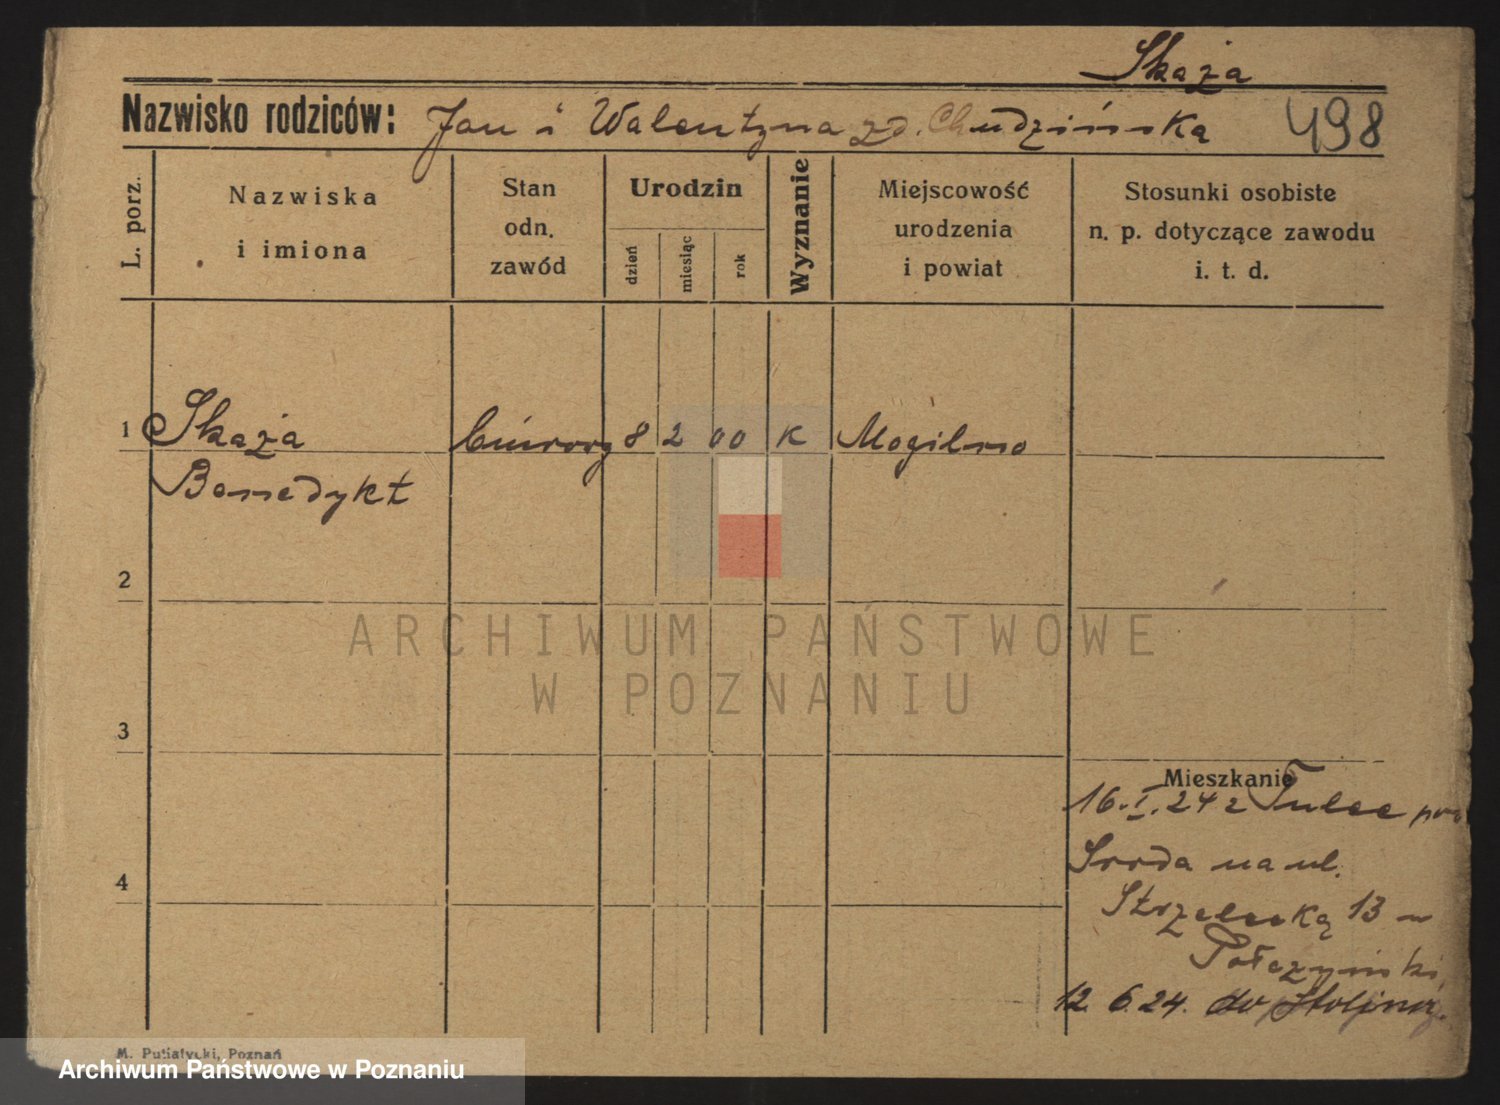 Skąża
Nazwisko rodziców: Jan i Walentyna zd. Chudzińska
498
L. porz.
Nazwiska
i imiona
Stan
odn.
zawód
Urodzin
dzień
miesiąc
rok
Wyznanie
Miejscowość
urodzenia
i powiat
Stosunki osobiste
n. p. dotyczące zawodu
i. t. d.
1 Skąża 8 2 00 K Mogilno
Benedykt
2
3
4
Mieszkanie
16.I.24 z Tulce
Środa na ul.
Strzelecką 13
12. 6.24. do
ARCHIWUM PAŃSTWOWE
W POZNANIU
M. Putiatycki, Poznań
Archiwum Państwowe w Poznaniu